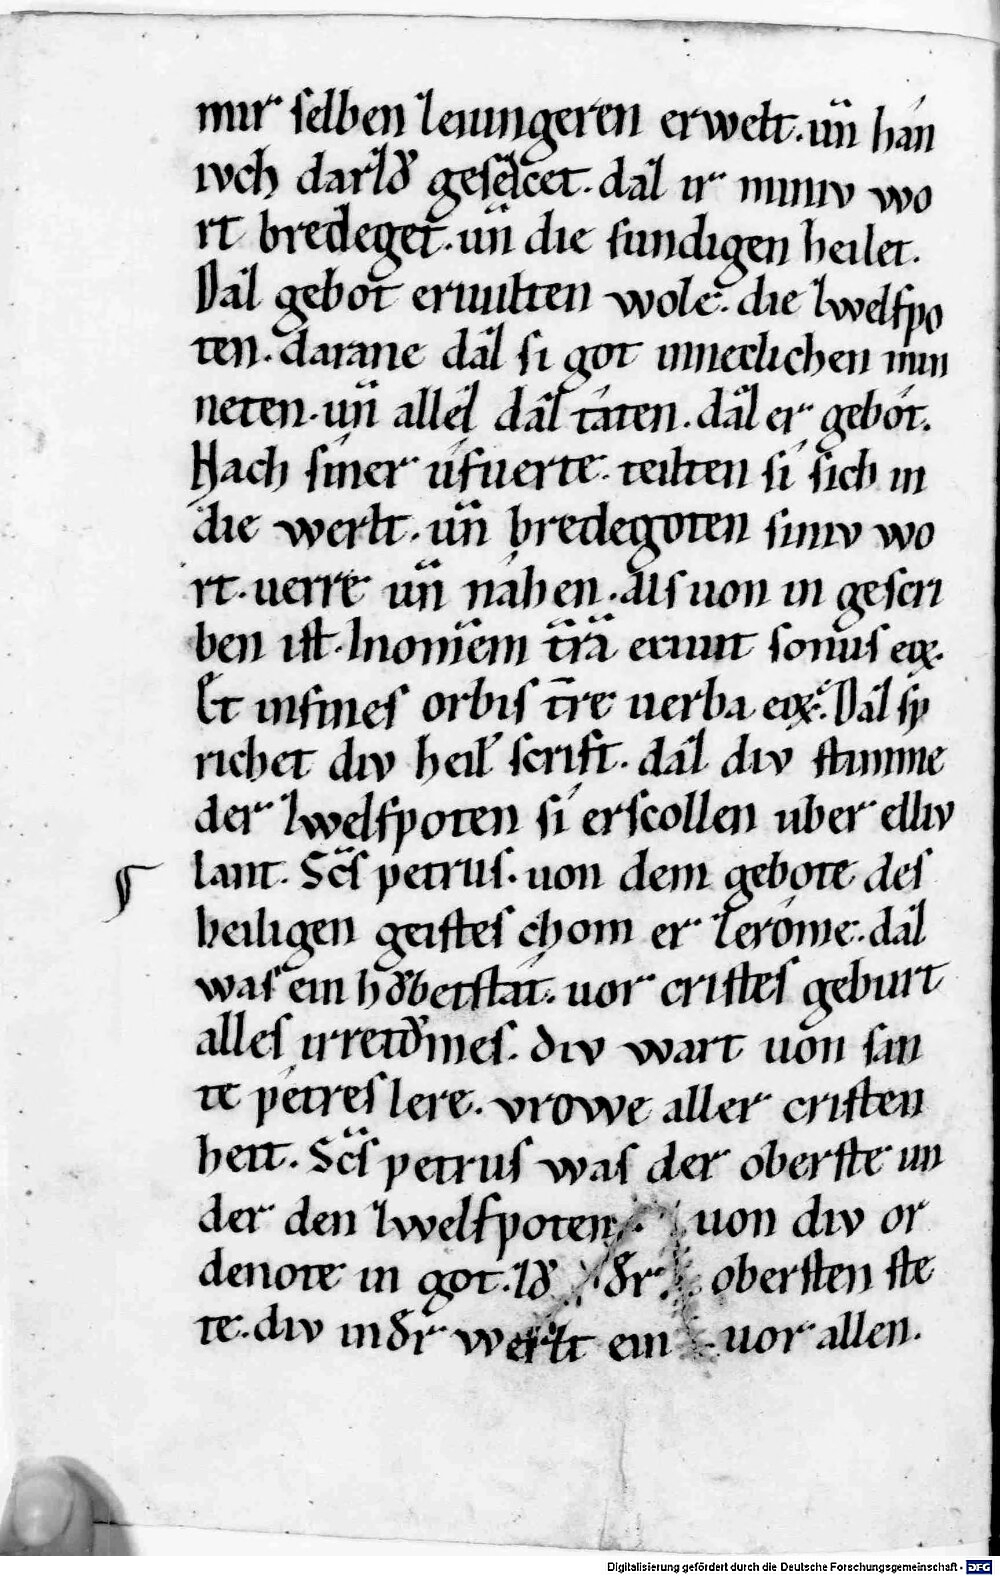 mir selben zeiungeren erwelt. un̄ hán
ivch darzů gesezcet. daz ir miniv wo
rt bredeget. un̄ die sundigen heilet.
Daz gebot eruulten wole. die zwelfpo
ten. darane daz si got inneclichen min
neten. un̄ allez daz táten. daz er gebót.
Nach síner úfuerte. teilten sí sich in
die werlt. un̄ bredegoten siniv wo
rt. verre un̄ náhen. als uon in gescri
ben ist. In om̄em tr̄ā exiuit sonus eoꝝ.
Et in fines orbis tr̄re uerba eoꝝ. Daz sp
richet div heil̓ scrift. daz div stimme
der zwelfpoten sí erscollen uber elliv
lant. Sc̄s petrus. uon dem gebote des
heiligen geistes chom er ze róme. daz
was ein hǒbetstat. uor cristes geburt
alles irretůmes. div wart uon san
te pétres lere. vrowe aller cristen
heit. Sc̄s petrus was der oberste un
der den zwelfpoten. uon div or
denote in got. zů dr obersten ste
te. div in dr werlt ein uor allen.
Digitalisierung gefördert durch die Deutsche Forschungsgemeinschaft - DFG